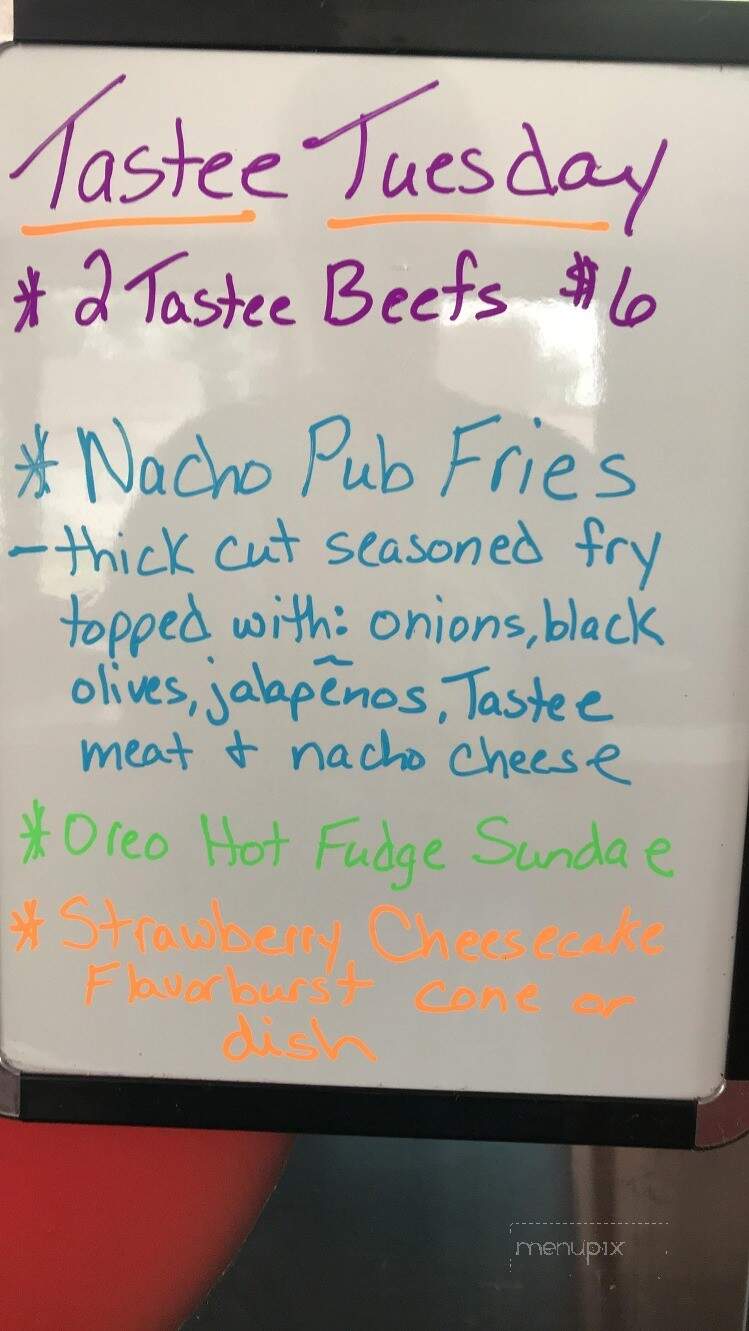 Tastee Tuesday
* 2 Tastee Beefs $6
* Nacho Pub Fries
- thick cut seasoned fry
topped with: onions, black
olives, jalapeños, Tastee
meat + nacho cheese
* Oreo Hot Fudge Sundae
* Strawberry Cheesecake
Flavorburst cone or
dish
menupix